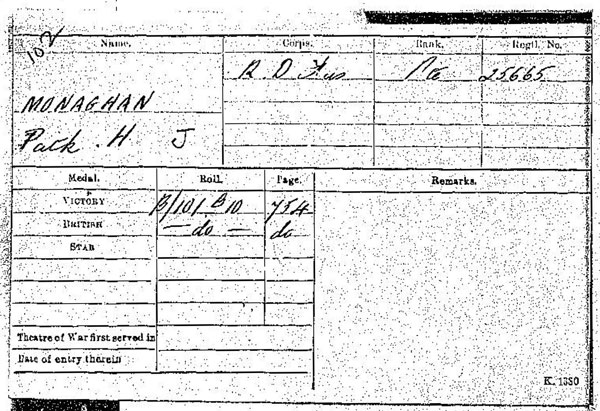 102
Name. Corps. Rank. Regtl. No.
R. D. Fus Pte 25665
MONAGHAN
Patk. H J
Medal. Roll. Page. Remarks.
VICTORY B/101 B10 734
BRITISH — do — do
STAR
Theatre of War first served in
Date of entry therein
K. 1380